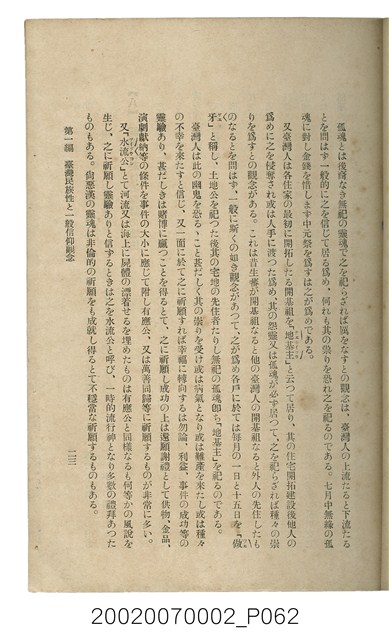 孤魂とは後裔なき無祀の靈魂で之を祀らざれば厲をなすとの觀念は、臺灣人の上流たると下流たる
とを問はず一般的に之を信じて居る爲め、何れも其の祟りを恐れ之を祀るのである。七月中無緣の孤
魂に對し金錢を惜しまず中元祭を爲すは之が爲めである。
又臺灣人は各住家の最初に開拓したる開基祖を「地基主」と云つて居り、其の住宅開拓建設後他人の
爲めに之を侵奪され或は人手に渡つた爲め、其の怨靈又は孤魂が必ず居つて、之を祀らざれば種々の祟
りを爲すとの觀念がある。これは昔生蕃が開基祖なると他の臺灣人の開基祖なると外人の先住したも
のなるとを問はず、一般に斯くの如き觀念があつて、之が爲め各戶に於ては每月の一日と十五日を「做
牙」と稱し、土地公を祀つた後其の宅地の先住者たりし無祀の孤魂卽ち「地基主」を祀るのである。
臺灣人は此の幽鬼を恐るゝこと甚だしく其の祟りを受け或は病氣となり或は難產を來たし或は種々
の不幸を來たすと信じ、又一面に於て之に祈願すれば幸福に轉向するは勿論、利益、事件の成功等の
靈驗あり、甚だしきは賭博に贏つことを得るとて、之に祈願し成功の上は還願謝禮として供物、金品、
演劇獻納等の條件を事件の大小に應じて附し有應公、又は萬善同歸等に祈願するものが非常に多い。
又「水流公」とて河流又は海上に屍體の漂着せるを埋めたものは有應公と同樣なるも何等かの風說を
生じ、之に祈願し靈驗ありと信ずるときは之を水流公と呼び、一時的流行神となり多數の禮拜あつた
ものもある。尙惡漢の靈魂は非倫的の祈願をも成就し得るとて不穩當な祈願するものもある。
第一編 臺灣民族性と一般信仰觀念
二三
20020070002_P062